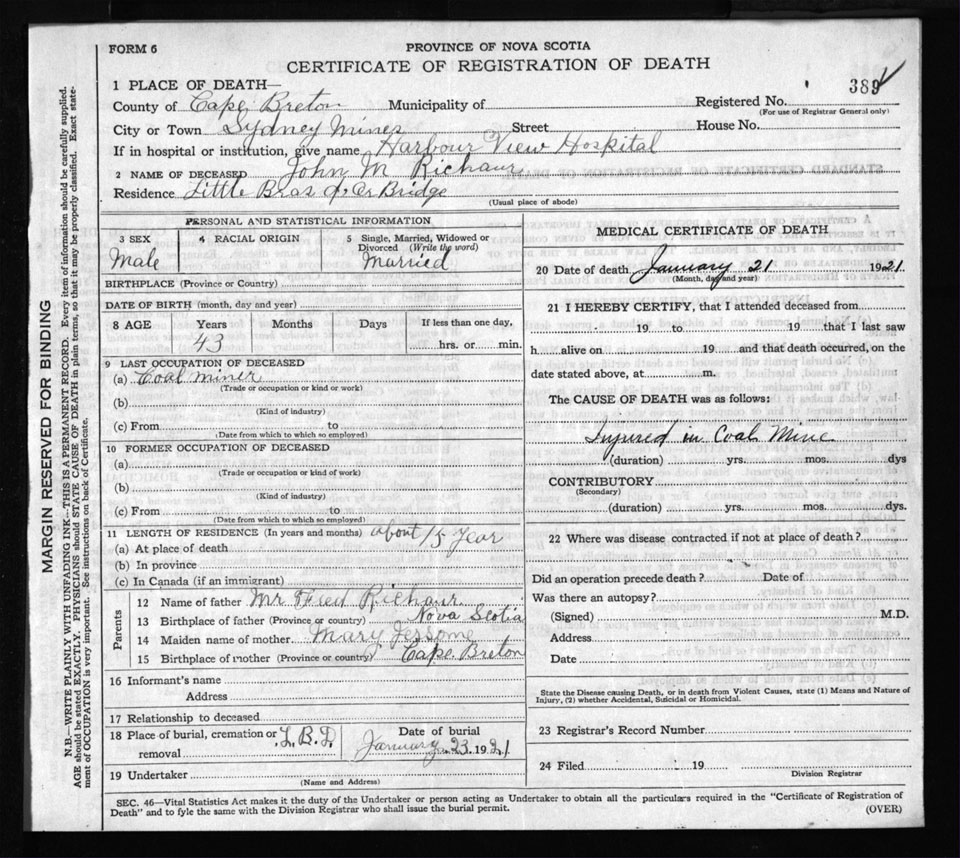 FORM 6
PROVINCE OF NOVA SCOTIA
CERTIFICATE OF REGISTRATION OF DEATH
1 PLACE OF DEATH—
389
County of Cape Breton Municipality of Registered No.
(For use of Registrar General only)
City or Town Sydney Mines Street House No.
If in hospital or institution, give name Harbour View Hospital
2 NAME OF DECEASED John M Richaur
Residence Little Bras d'Or Bridge
(Usual place of abode)
PERSONAL AND STATISTICAL INFORMATION
3 SEX 4 RACIAL ORIGIN 5 Single, Married, Widowed or
Divorced (Write the word)
Male Married
BIRTHPLACE (Province or Country)
DATE OF BIRTH (month, day and year)
8 AGE Years Months Days If less than one day,
43 hrs. or min.
9 LAST OCCUPATION OF DECEASED
(a) Coal miner
(Trade or occupation or kind or work)
(b)
(Kind of industry)
(c) From to
(Date from which to which so employed)
10 FORMER OCCUPATION OF DECEASED
(a)
(Trade or occupation or kind of work)
(b)
(Kind of industry)
(c) From to
(Date from which to which so employed)
11 LENGTH OF RESIDENCE (In years and months) about 15 Year
(a) At place of death
(b) In province
(c) In Canada (if an immigrant)
Parents
12 Name of father Mr Fred Richaur
13 Birthplace of father (Province or country) Nova Scotia
14 Maiden name of mother Mary Jessome
15 Birthplace of mother (Province or country) Cape Breton
16 Informant's name
Address
17 Relationship to deceased
18 Place of burial, cremation or removal L.B.D. Date of burial
January 23 1921
19 Undertaker
(Name and Address)
MEDICAL CERTIFICATE OF DEATH
20 Date of death January 21 1921
(Month, day and year)
21 I HEREBY CERTIFY, that I attended deceased from
19 to 19 that I last saw
h alive on 19 and that death occurred, on the
date stated above, at m.
The CAUSE OF DEATH was as follows:
Injured in Coal Mine
(duration) yrs. mos. dys
CONTRIBUTORY
(Secondary)
(duration) yrs. mos. dys.
22 Where was disease contracted if not at place of death?
Did an operation precede death? Date of
Was there an autopsy?
(Signed) M.D.
Address
Date
State the Disease causing Death, or in death from Violent Causes, state (1) Means and Nature of
Injury, (2) whether Accidental, Suicidal or Homicidal.
23 Registrar's Record Number
24 Filed 19
Division Registrar
SEC. 46—Vital Statistics Act makes it the duty of the Undertaker or person acting as Undertaker to obtain all the particulars required in the "Certificate of Registration of
Death" and to fyle the same with the Division Registrar who shall issue the burial permit. (OVER)
MARGIN RESERVED FOR BINDING
N.B.—WRITE PLAINLY WITH UNFADING INK—THIS IS A PERMANENT RECORD. Every item of information should be carefully supplied.
AGE should be stated EXACTLY. PHYSICIANS should STATE CAUSE OF DEATH in plain terms, so that it may be properly classified. Exact state-
ment of OCCUPATION is very important. See instructions on back of Certificate.